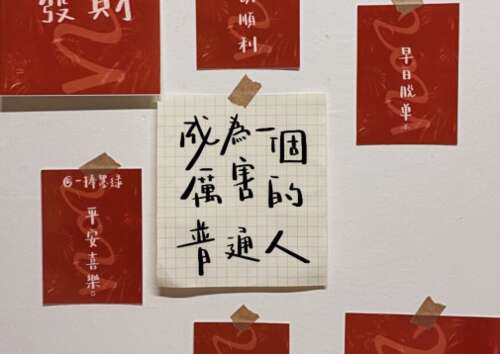 發財
順利
早日脫單。
成為一個
厲害的
普通人
平安喜樂。